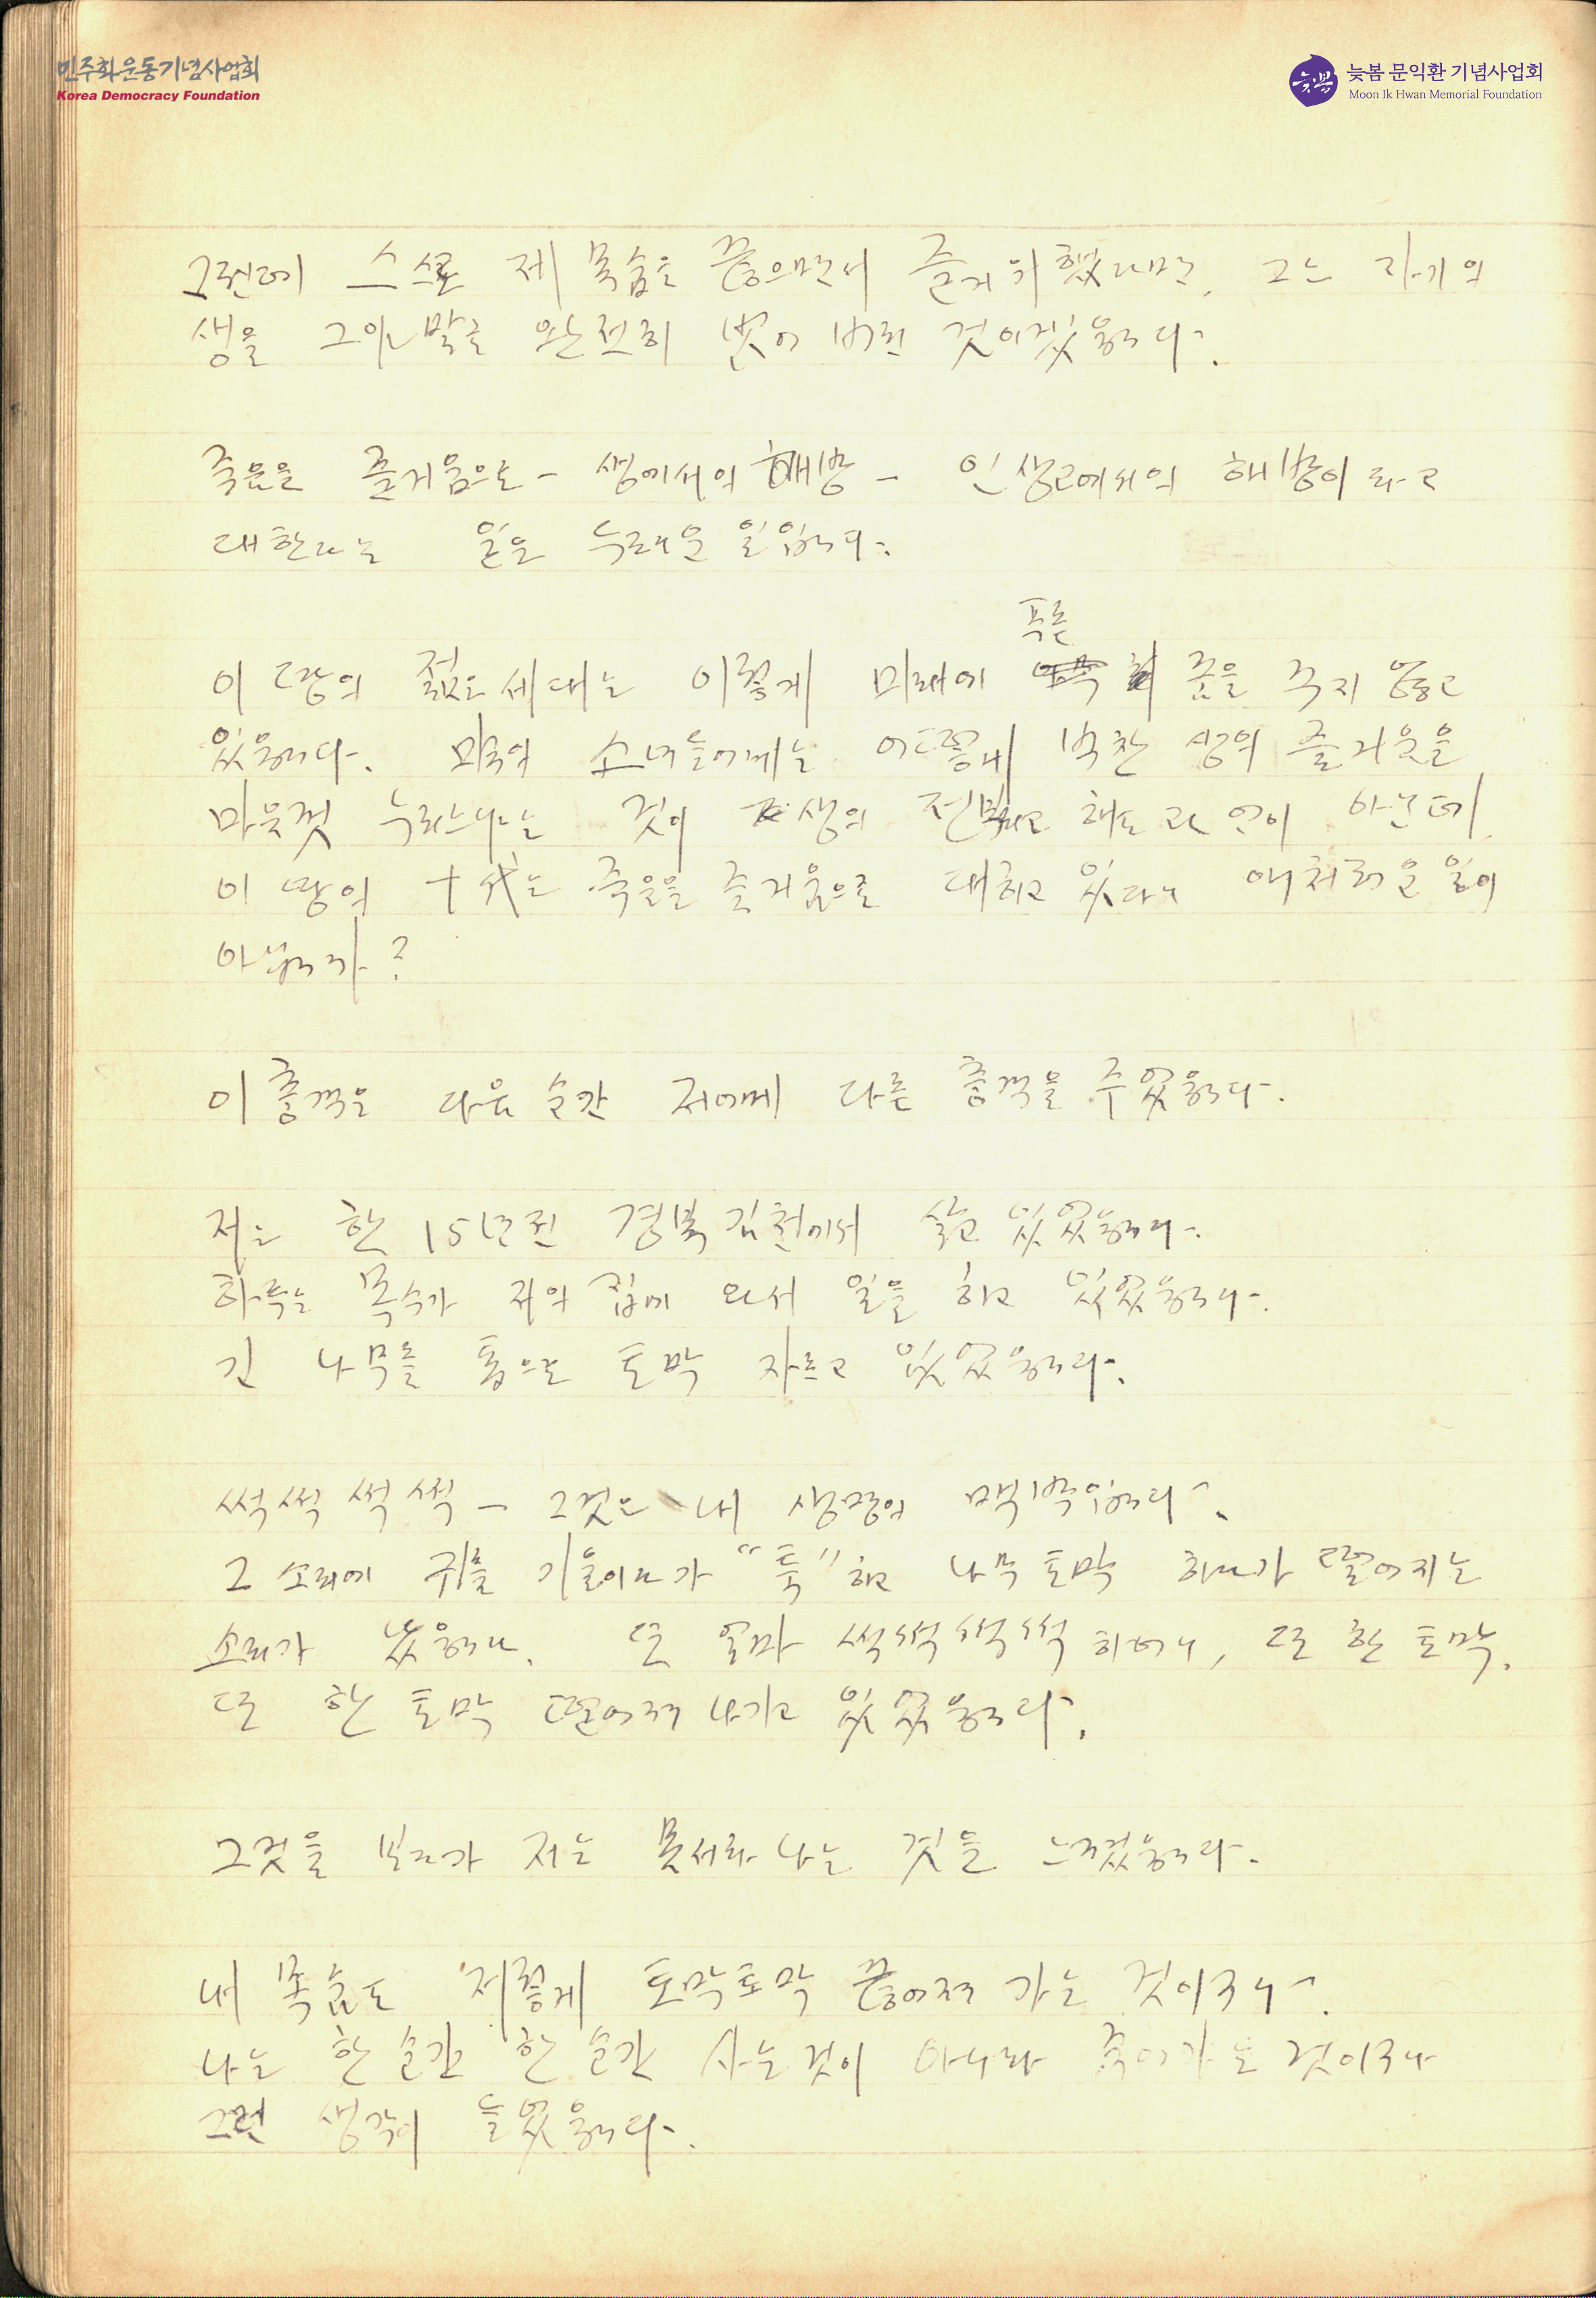 민주화운동기념사업회
Korea Democracy Foundation
늦봄 문익환 기념사업회
Moon Ik Hwan Memorial Foundation
그런데 스스로 제 목숨을 끊으면서 즐거워했다면, 그는 자기의
생을 그야말로 완전히 벗어 버린 것이겠읍니다.
죽음을 즐거움으로 - 생에서의 해방 - 인생고에서의 해방이라고
대한다는 일은 두려운 일입니다.
푸른
이 땅의 젊은 세대는 이렇게 미래에 꿈을 주지 않고
있읍니다. 미국의 소녀들에게는 어떻게 벅찬 성의 즐거움을
마음껏 누리느냐는 것이 생의 전부라고 해도 과언이 아닌데,
이 땅의 十代는 죽음을 즐거움으로 대하고 있다니 애처러운 일이
아닙니까?
이 충격은 다음 순간 저에게 다른 충격을 주었읍니다.
저는 한 15년전 경북 김천에서 살고 있었읍니다.
하루는 목수가 저의 집에 와서 일을 하고 있었읍니다.
긴 나무를 톱으로 토막 자르고 있었읍니다.
썩썩 썩썩 - 그것은 내 생명의 맥박입니다.
그 소리에 귀를 기울이다가 "툭" 하고 나무 토막 하나가 떨어지는
소리가 났읍니다. 또 얼마 썩썩썩썩 하더니, 또 한 토막,
또 한 토막 떨어져 나가고 있었읍니다.
그것을 보다가 저는 몸서리 나는 것을 느꼈읍니다.
내 목숨도 저렇게 토막토막 끊어져 가는 것이구나.
나는 한 순간 한 순간 사는 것이 아니라 죽어가는 것이구나
그런 생각이 들었읍니다.